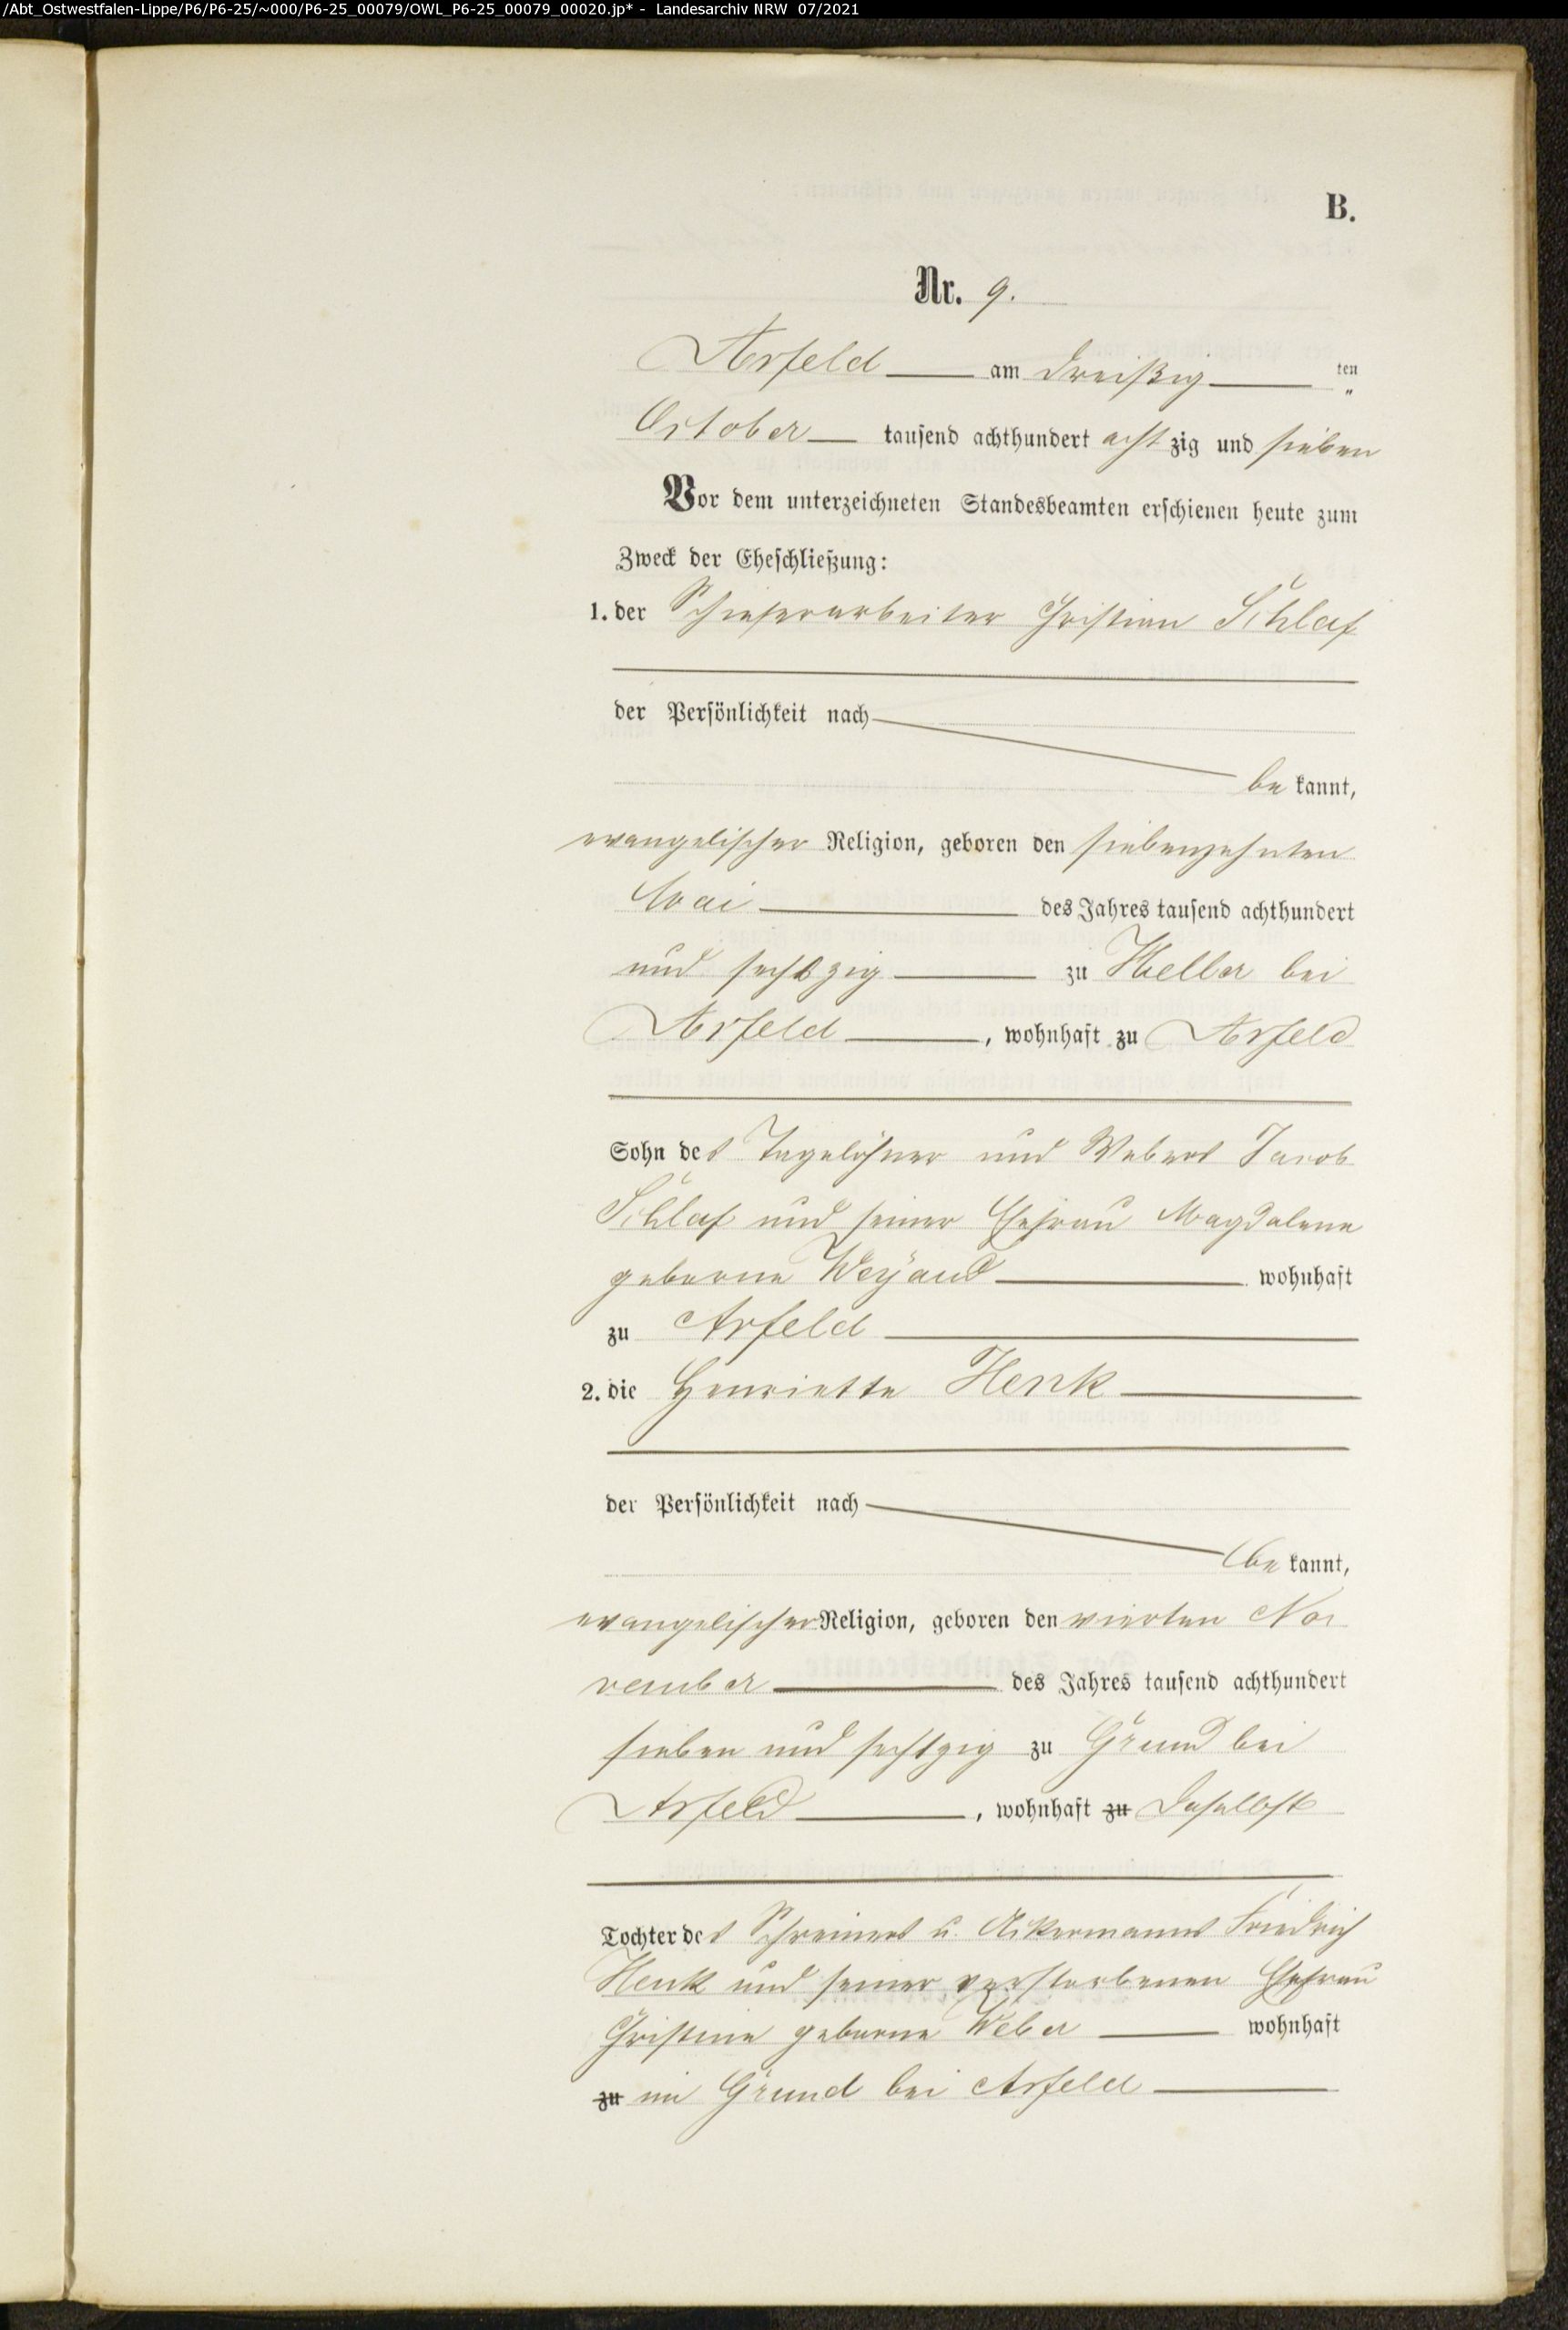 /Abt_Ostwestfalen-Lippe/P6/P6-25/~000/P6-25_00079/OWL_P6-25_00079_00020.jp* - Landesarchiv NRW 07/2021
B.
Nr. 9.
Arfeld am dreißig ten
October tausend achthundert acht zig und sieben
Vor dem unterzeichneten Standesbeamten erschienen heute zum
Zweck der Eheschließung:
1. der Schieferarbeiter Christian Schlaf
der Persönlichkeit nach
be kannt,
evangelischer Religion, geboren den siebenzehnten
Mai des Jahres tausend achthundert
und sechszig zu Heller bei
Arfeld, wohnhaft zu Arfeld
Sohn des Tagelöhner und Webers Jacob
Schlaf und seiner Ehefrau Magdalene
geborne Weyand wohnhaft
zu Arfeld
2. die Henriette Henk
der Persönlichkeit nach
be kannt,
evangelischer Religion, geboren den vierten No
vember des Jahres tausend achthundert
sieben und sechszig zu Grund bei
Arfeld, wohnhaft zu daselbst
Tochter des Schreiners u. Ackermanns Friedrich
Henk und seiner verstorbenen Ehefrau
Christine geborne Weber wohnhaft
zu im Grund bei Arfeld